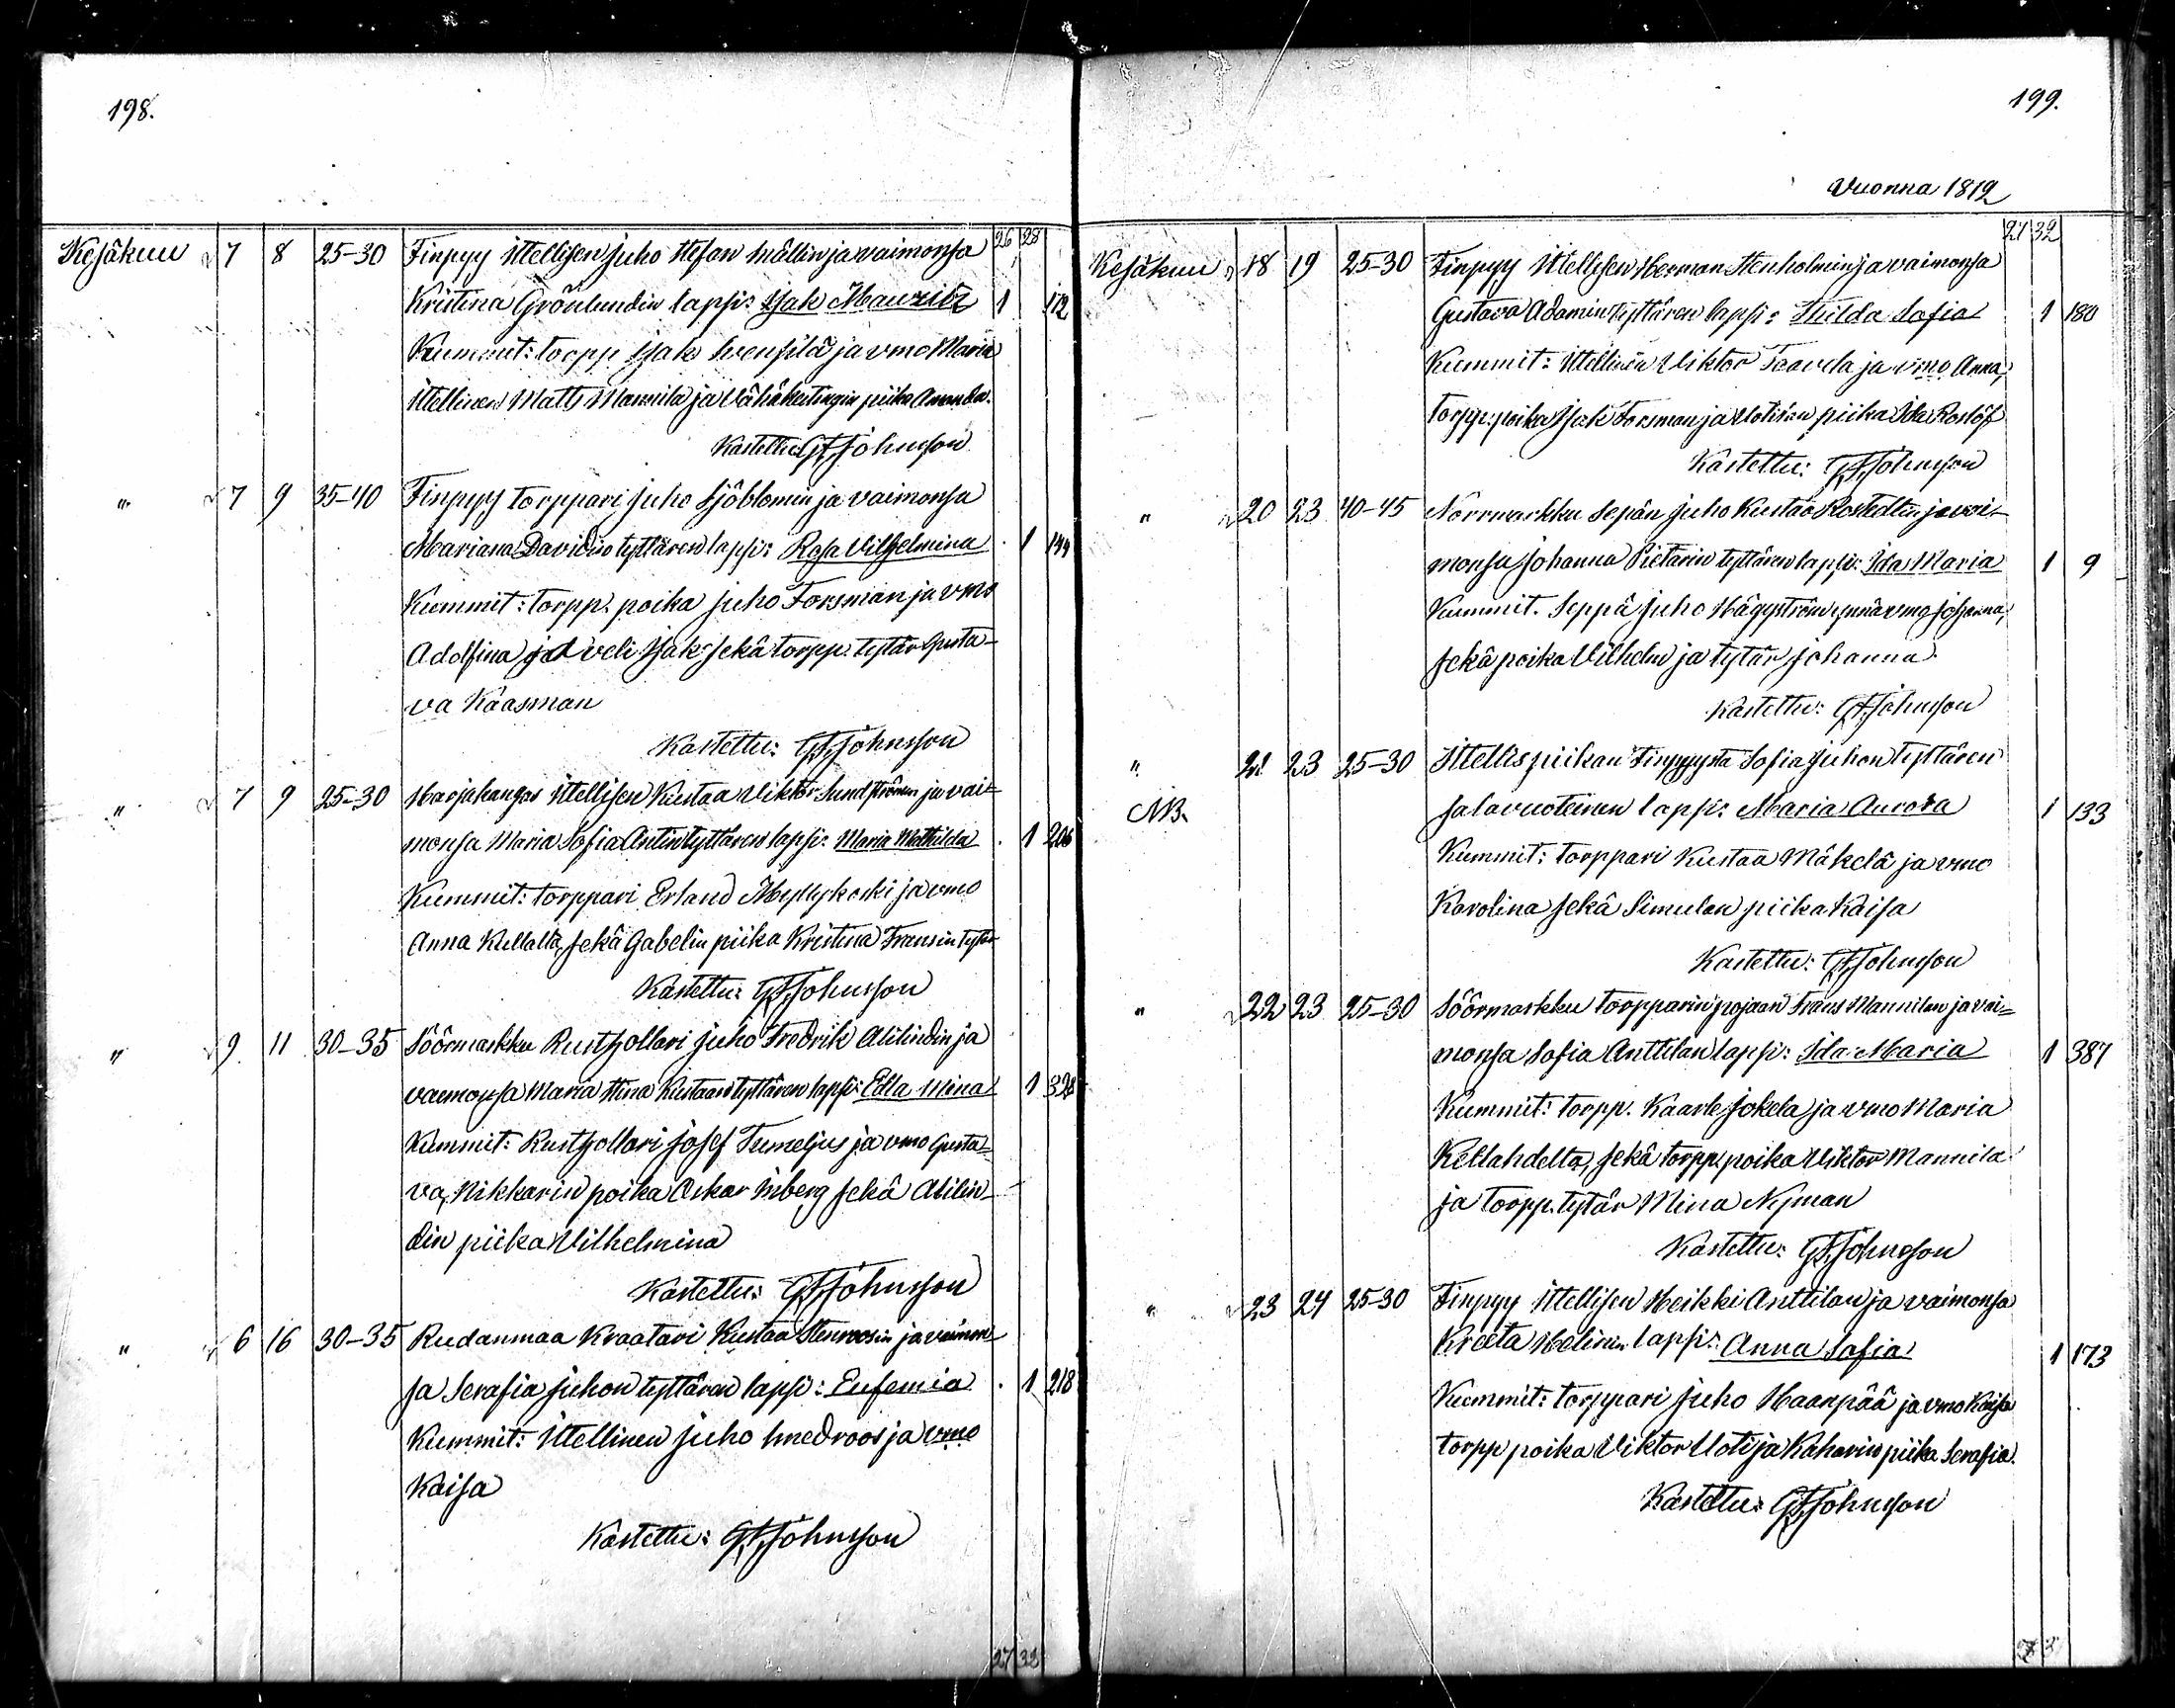 198.
26 28
Kesäkuu 7 8 25-30 Finpyy Ittellisen Juho Stefan Mällin ja vaimonsa
Kristina Grönlundin lapsi: Isak Mauritz 1 172
Kummit: torpp. Isak Svensilä ja vmo Maria
Ittellinen Matts Mannila ja Vähäkeitingin piika Amanda.
Kastettu: GFJohnsson
" 7 9 35-40 Finpyy torppari Juho Sjöblomin ja vaimonsa
Mariana Davidin tyttären lapsi: Rosa Vilhelmina 1 144
Kummit: torpp. poika Juho Forsman ja vmo
Adolfina ja veli Isak sekä torpp. tytär Gusta-
va Kaasman
Kastettu: GFJohnsson
" 7 9 25-30 Harjakangas Ittellisen Kustaa Viktor Sundströmin ja vai-
monsa Maria Sofia Antintyttären lapsi: Maria Mathilda 1 206
Kummit: torppari Erland Myllykoski ja vmo
Anna Kullalta, sekä Gabelin piika Kristina Fransin tytär
Kastettu: GFJohnsson
" 9 11 30-35 Söörmarkku Rusthollari Juho Fredrik Alilindin ja
vaimonsa Maria Stina Kustaan tyttären lapsi: Edla Mina 1 328
Kummit: Rusthollari Josef Tumelius ja vmo Gusta-
va, Nikkarin poika Oskar Inberg sekä Alilin-
din piika Vilhelmina
Kastettu: GFJohnsson
" 6 16 30-35 Rudanmaa Kraatari Kustaa Stenroosin ja vaimon-
sa Serafia Juhon tyttären lapsi: Eufemia 1 218
Kummit: Ittellinen Juho Smedroos ja vmo
Kaisa
Kastettu: GFJohnsson
27 32
199.
Vuonna 1879
27 32
Kesäkuu 18 19 25-30 Finpyy Ittellisen Herman Stenholmin ja vaimonsa
Gustava Adamin tyttären lapsi: Hilda Sofia 1 180
Kummit: Ittellinen Viktor Taavela ja vmo Anna,
torpp. poika Isak Forsman ja Uotilan piika Ida Roslöf
Kastettu: GFJohnsson
" 20 23 40-45 Norrmarkku Sepän Juho Kustaa Rostedtin ja vai-
monsa Johanna Pietarin tyttären lapsi: Ida Maria 1 9
Kummit. Seppä Juho Häggström ynnä vmo Johanna,
sekä poika Vilhelm ja tytär Johanna.
Kastettu: GFJohnsson
" 21 23 25-30 Ittellis piikan Finpyystä Sofia Juhon tyttären
NB. salavuoteinen lapsi: Maria Aurora 1 133
Kummit: torppari Kustaa Mäkelä ja vmo
Karolina sekä Simulan piika Kaisa
Kastettu: GFJohnsson
" 22 23 25-30 Söörmarkku torpparin pojaan Frans Mannilan ja vai-
monsa Sofia Anttilan lapsi: Ida Maria 1 387
Kummit: torpp. Kaarle Jokela ja vmo Maria
Kellahdelta, sekä torpp. poika Viktor Mannila
ja torpp. tytär Mina Nyman
Kastettu: GFJohnsson
" 23 24 25-30 Finpyy Ittellisen Heikki Anttilan ja vaimonsa
Kreeta Helinin lapsi: Anna Sofia 1 173
Kummit: torppari Juho Haanpää ja vmo Kaisa
torpp poika Viktor Uoti ja Kaharin piika Serafia.
Kastettu: GFJohnsson